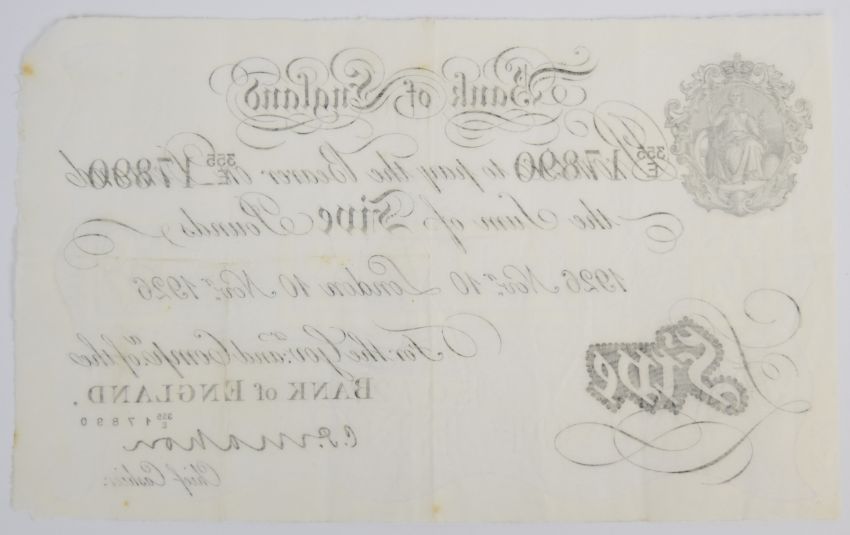 Bank of England
355/E 17890 to pay the Bearer on 355/E 17890
the Sum of Five Pounds
1926 Novr. 10 London 10 Novr. 1926
Five
For the Govr. and Compa. of the
BANK of ENGLAND.
355/E 17890
C.P. Mahon
Chief Cashier.